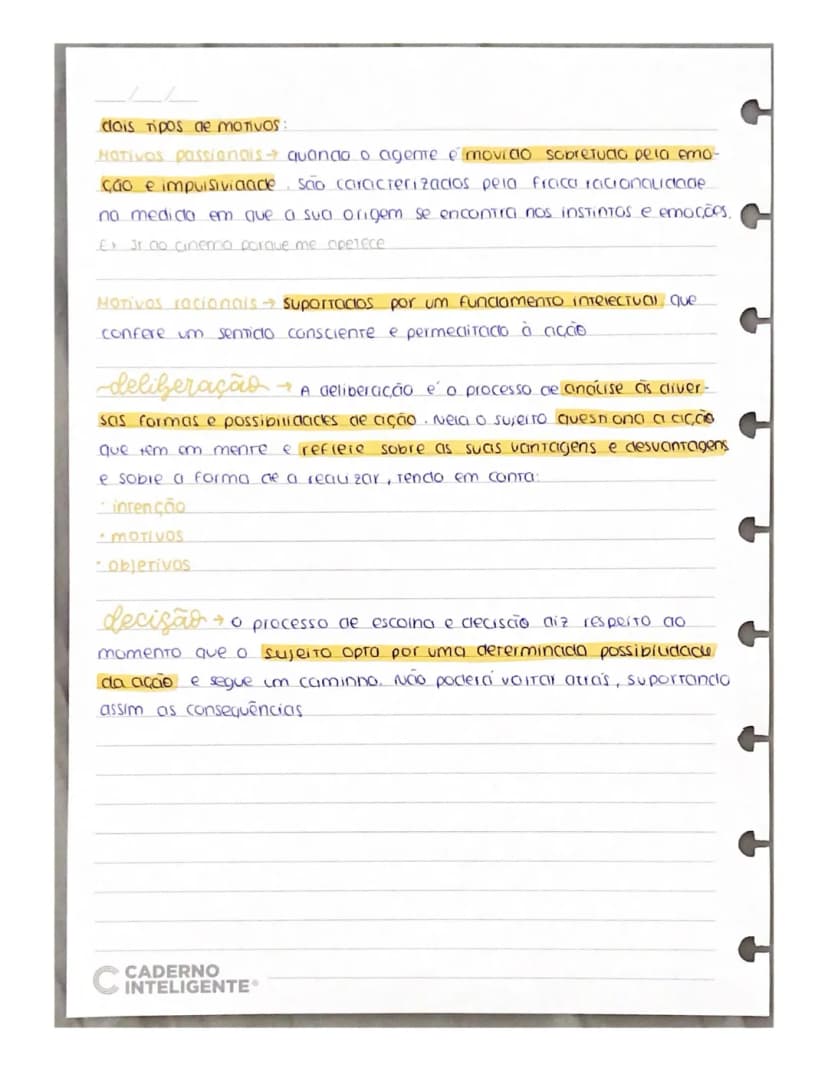 __/__/__
dois tipos de motivos:
Motivos passionais → quando o agente é movido sobretudo pela emo-
ção e impulsividade. São caracterizados pela fraca racionalidade
na medida em que a sua origem se encontra nos instintos e emoções.
Ex Ir ao cinema porque me apetece
Motivos racionais → suportados por um fundamento intelectual, que
confere um sentido consciente e permeditado à acção
deliberação → A deliberação é o processo de análise às diver-
sas formas e possibilidades de ação. Nela o sujeito questiona a ação
que têm em mente e reflete sobre as suas vantagens e desvantagens
e sobre a forma de a realizar, tendo em conta:
· intenção
· motivos
· objetivos
decisão → o processo de escolha e decisão diz respeito ao
momento que o sujeito opta por uma determinada possibilidade
da ação e segue um caminho. Não poderá voltar atrás, suportando
assim as consequências
CADERNO
INTELIGENTE®